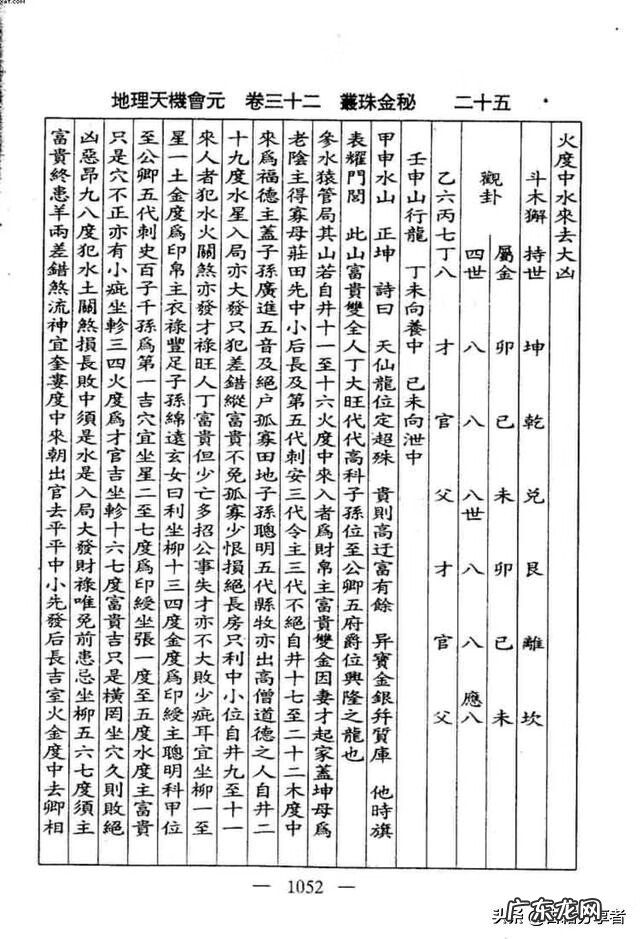 地理天機會元 卷三十二 叢珠金秘 二十五
火度中水來去大凶
斗木獬 持世 坤 乾 兑 艮 離 坎
觀卦 屬金 卯 巳 未 卯 巳 未
四世 八 八 八世 八 八 應八
乙六丙七丁八 才 官 父 才 官 父
壬申山行龍 丁未向養中 己未向泄中
甲申水山 正坤 詩曰 天仙龍位定超殊 貴則高迁富有餘 昇寶金銀幷質庫 他時旗
表耀門閭 此山富貴雙全人丁大旺代代高科子孫位至公卿五府爵位興隆之龍也
參水猿管局其山若自井十一至十六火度中來入者爲財帛主富貴雙金因妻才起家蓋坤母爲
老陰主得寡母莊田先中小后長及第五代刺安三代令主三代不絕自井十七至二十二木度中
來爲福德主蓋子孫廣進五音及絕户孤寡田地子孫聰明五代縣牧亦出高僧道德之人自井二
十九度水星入局亦大發只犯差錯縱富貴不免孤寡少恨損絕長房只利中小位自井九至十一
來人者犯水火關煞亦發才祿旺人丁富貴但少亡多招公事失才亦不大敗少疵耳宜坐柳一至
星一土金度爲印帛主衣祿豐足子孫綿遠玄女曰利坐柳十三四度金度爲印綬主聰明科甲位
至公卿五代刺史百子千孫爲第一吉穴宜坐星二至七度爲印綬坐張一度至五度水度主富貴
只是穴不正亦有小疵坐軫三四火度爲才官吉坐軫十六七度富貴吉只是橫罔坐穴久則敗絕
凶惡昂九八度犯水土關煞損長敗中須是水是入局大發財祿唯免前患忌坐柳五六七度須主
富貴終患羊兩差錯煞流神宜奎婁度中來朝出官去平平中小先發后長吉室火金度中去卿相
— 1052 —
广东龙网